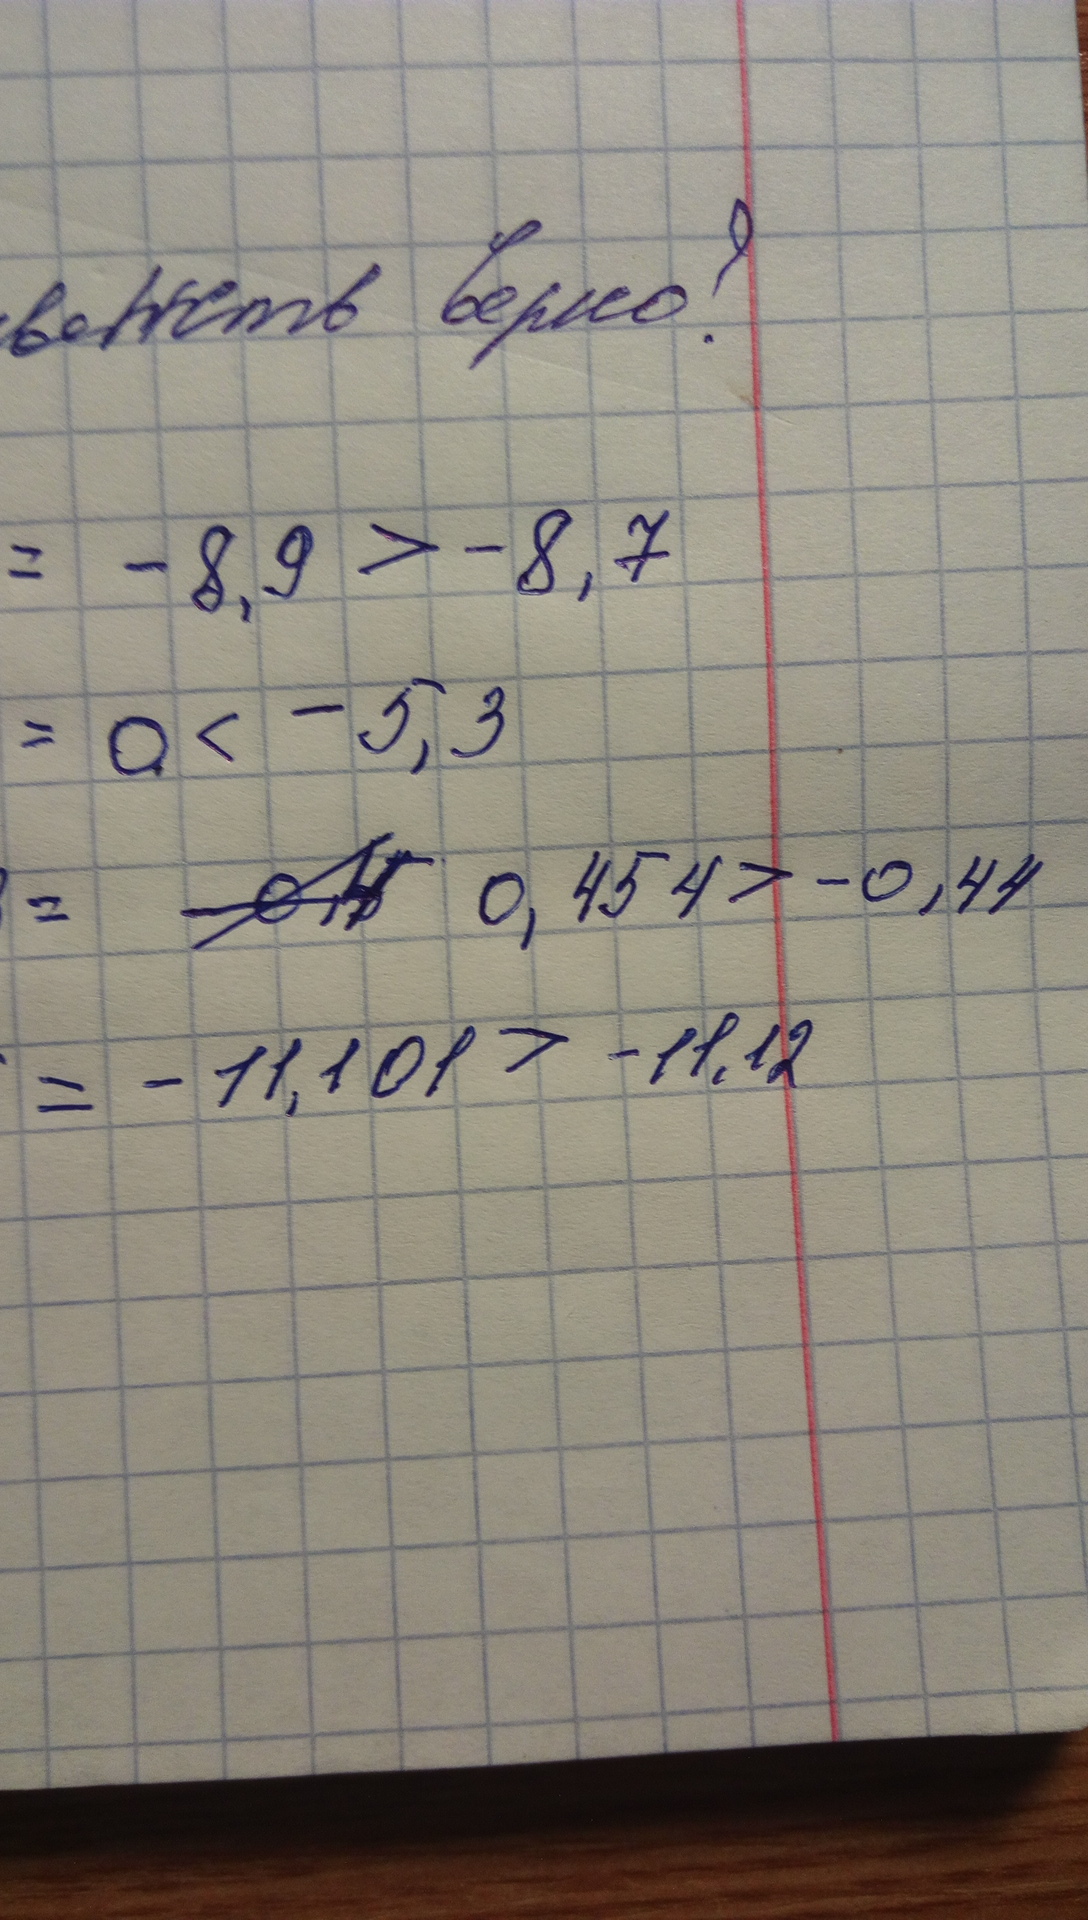 верно?
= -8,9 > -8,7
= 0 < -5,3
= 0,454 > -0,44
= -11,101 > -11,12